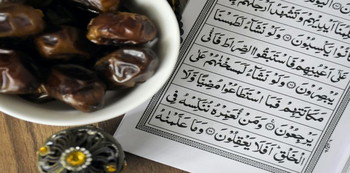 أَيْدِيهِمْ وَتَشْهَدُ أَرْجُلُهُمْ
يَكْسِبُونَ ۝ وَلَوْ نَشَاءُ لَطَمَسْنَا
عَلَىٰ أَعْيُنِهِمْ فَاسْتَبَقُوا الصِّرَاطَ فَأَنَّىٰ
يُبْصِرُونَ ۝ وَلَوْ نَشَاءُ لَمَسَخْنٰهُمْ عَلَىٰ
مَكَانَتِهِمْ فَمَا اسْتَطَاعُوا مُضِيًّا وَلَا
يَرْجِعُونَ ۝ وَمَنْ نُعَمِّرْهُ نُنَكِّسْهُ فِي
الْخَلْقِ أَفَلَا يَعْقِلُونَ ۝ وَمَا عَلَّمْنٰهُ